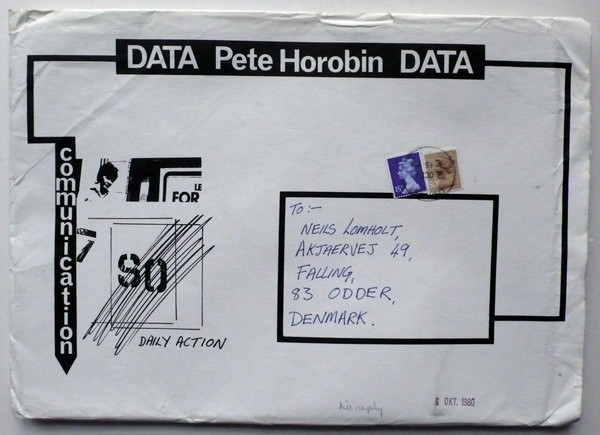 DATA Pete Horobin DATA
communication
LE
FOR
7
80
DAILY ACTION
To:-
NEILS LOMHOLT,
AKJAERVEJ 49,
FALLING,
83 ODDER,
DENMARK.
No reply
6 OKT. 1980